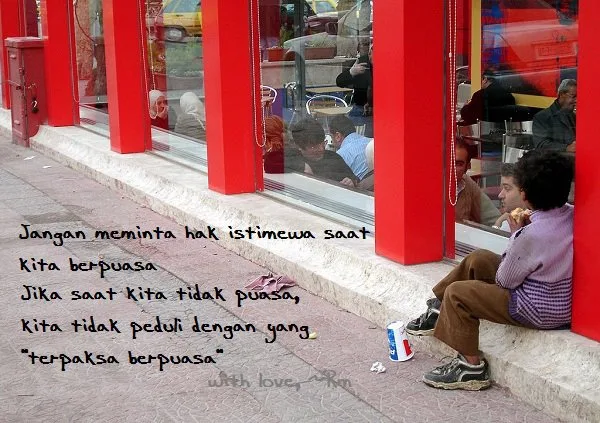 Jangan meminta hak istimewa saat
kita berpuasa
Jika saat kita tidak puasa,
kita tidak peduli dengan yang
"terpaksa berpuasa"
with love, ~Rm